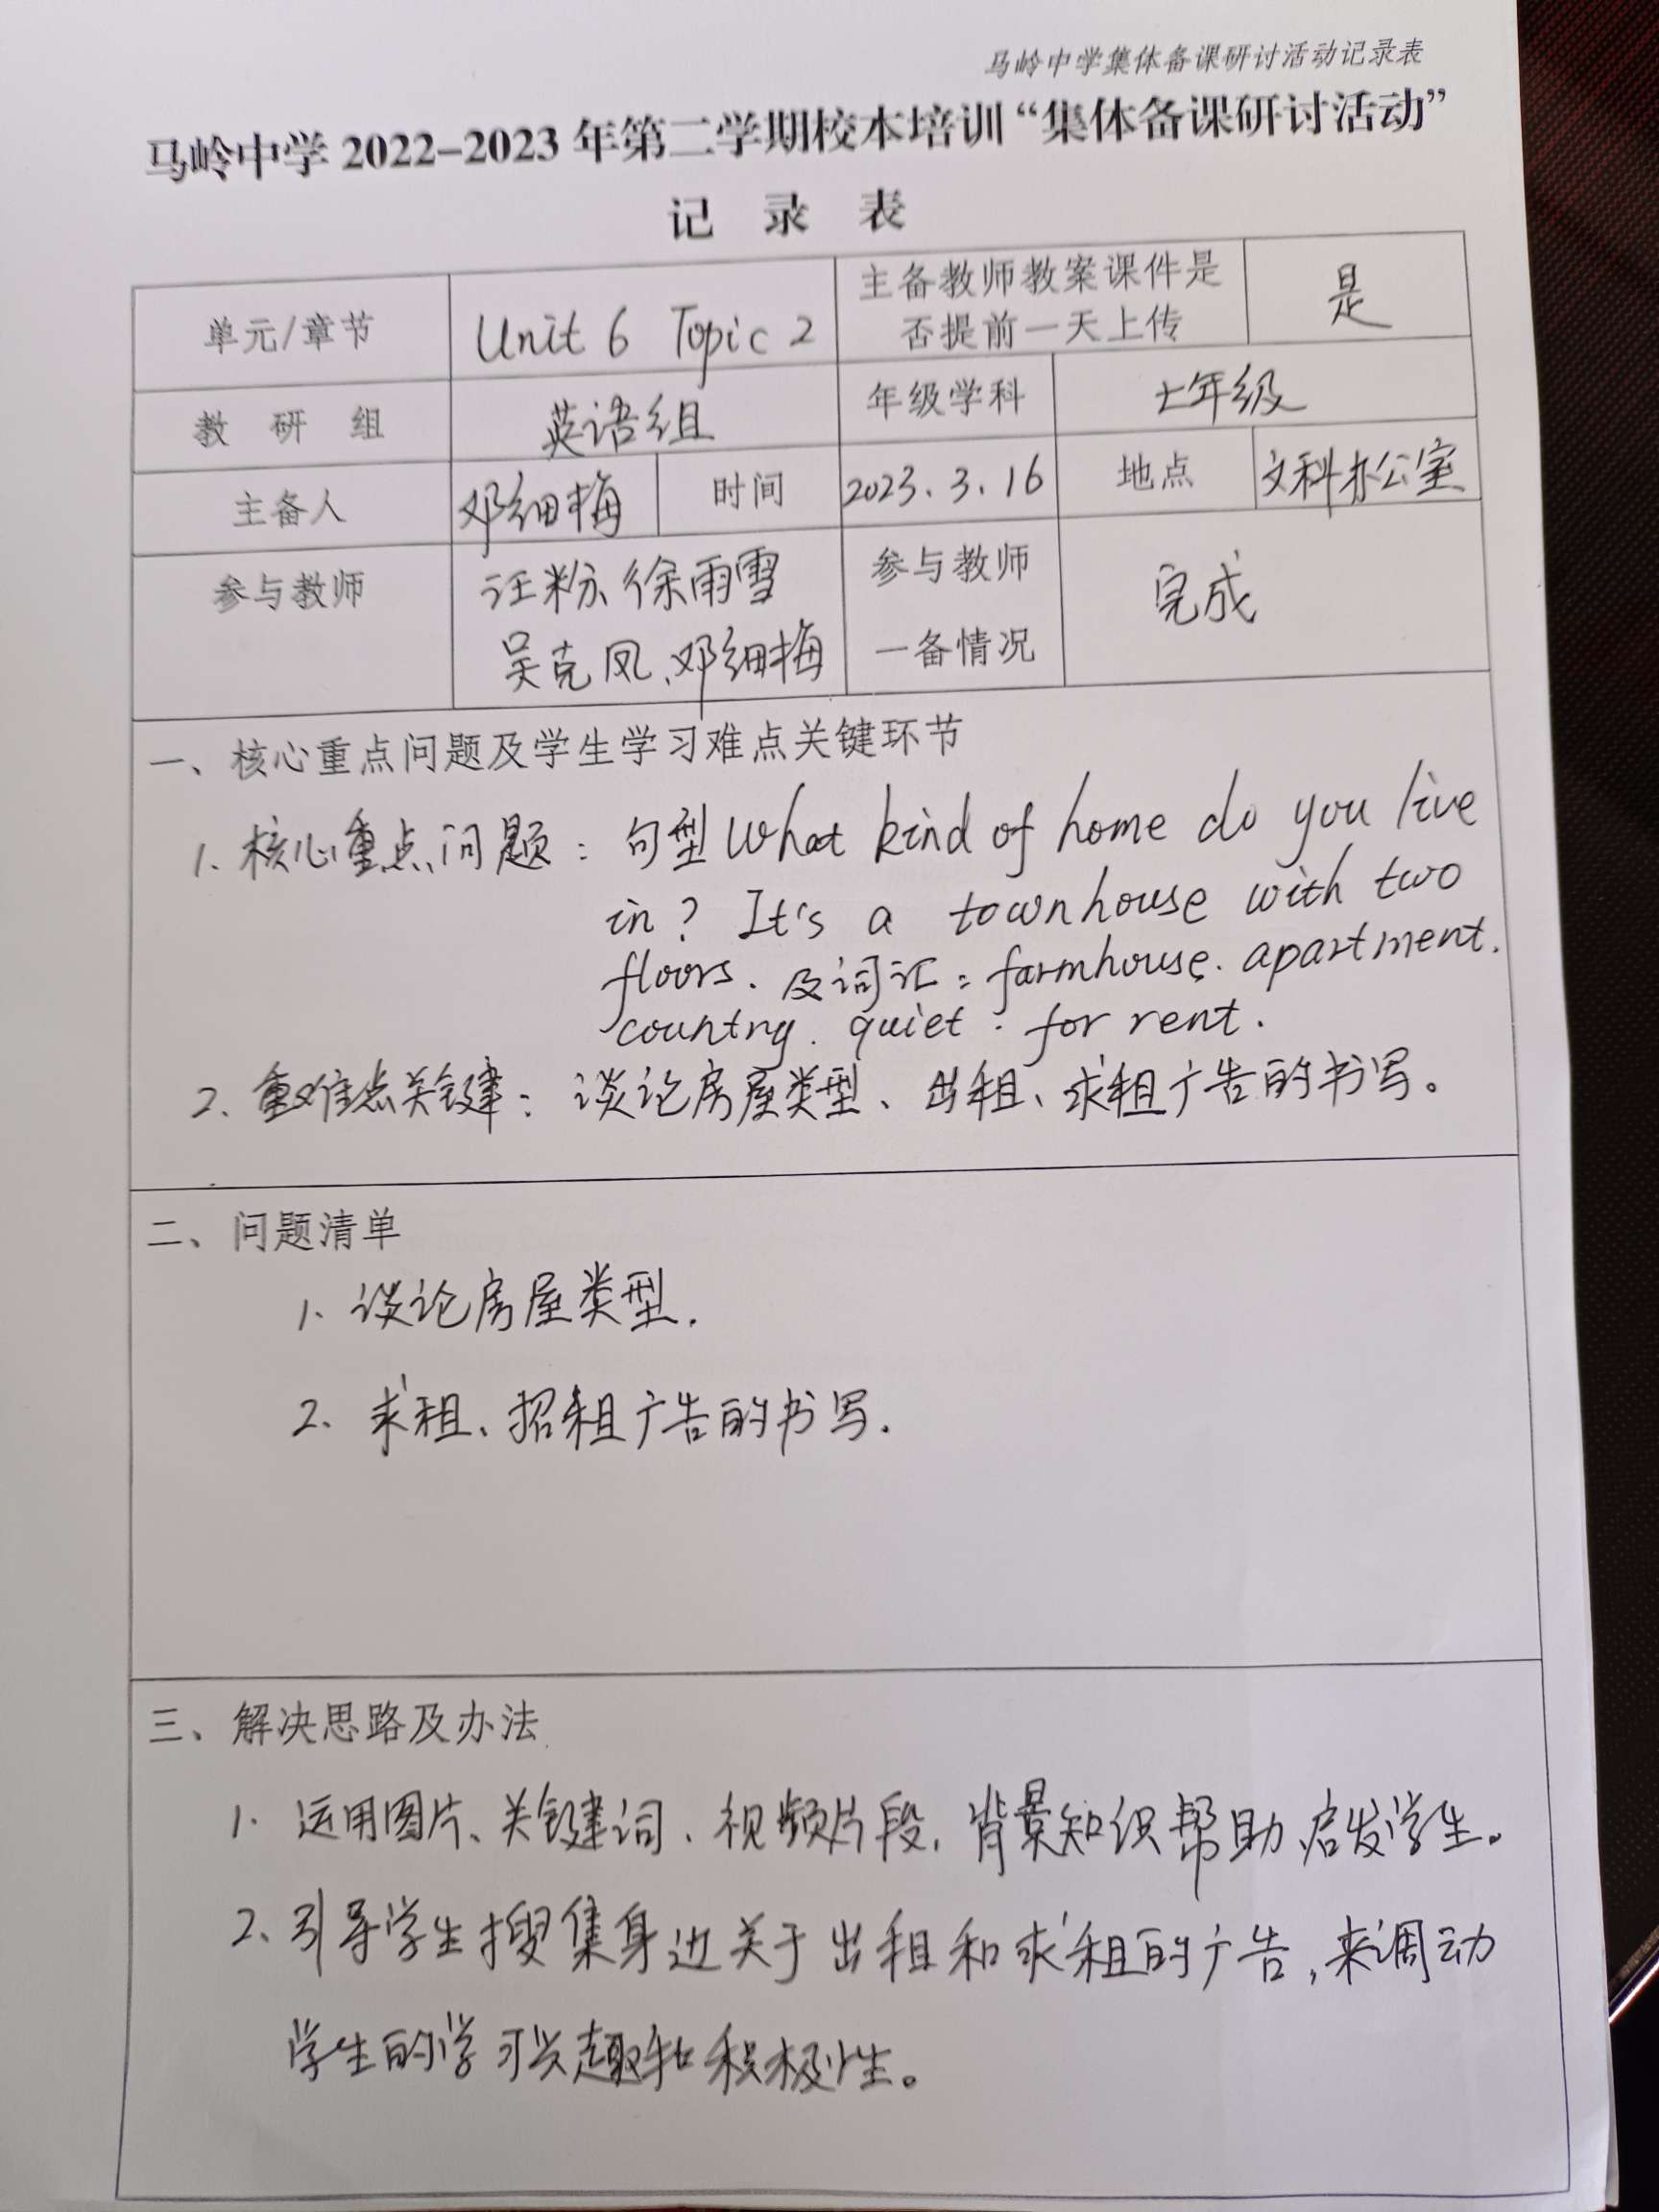 马岭中学集体备课研讨活动记录表
马岭中学 2022-2023 年第二学期校本培训“集体备课研讨活动”
记 录 表
单元/章节 Unit 6 Topic 2 主备教师教案课件是否提前一天上传 是
教 研 组 英语组 年级学科 七年级
主备人 邓细梅 时间 2023.3.16 地点 文科办公室
参与教师 汪粉、徐雨雪 参与教师 完成
吴克凤、邓细梅 一备情况
一、核心重点问题及学生学习难点关键环节
1. 核心重点问题：句型 What kind of home do you live
in? It's a townhouse with two
floors. 及词汇：farmhouse. apartment.
country. quiet. for rent.
2. 重难点关键：谈论房屋类型、出租、求租广告的书写。
二、问题清单
1. 谈论房屋类型.
2. 求租、招租广告的书写.
三、解决思路及办法
1. 运用图片、关键词、视频片段，背景知识帮助启发学生。
2. 引导学生搜集身边关于出租和求租的广告，来调动
学生的学习兴趣和积极性。